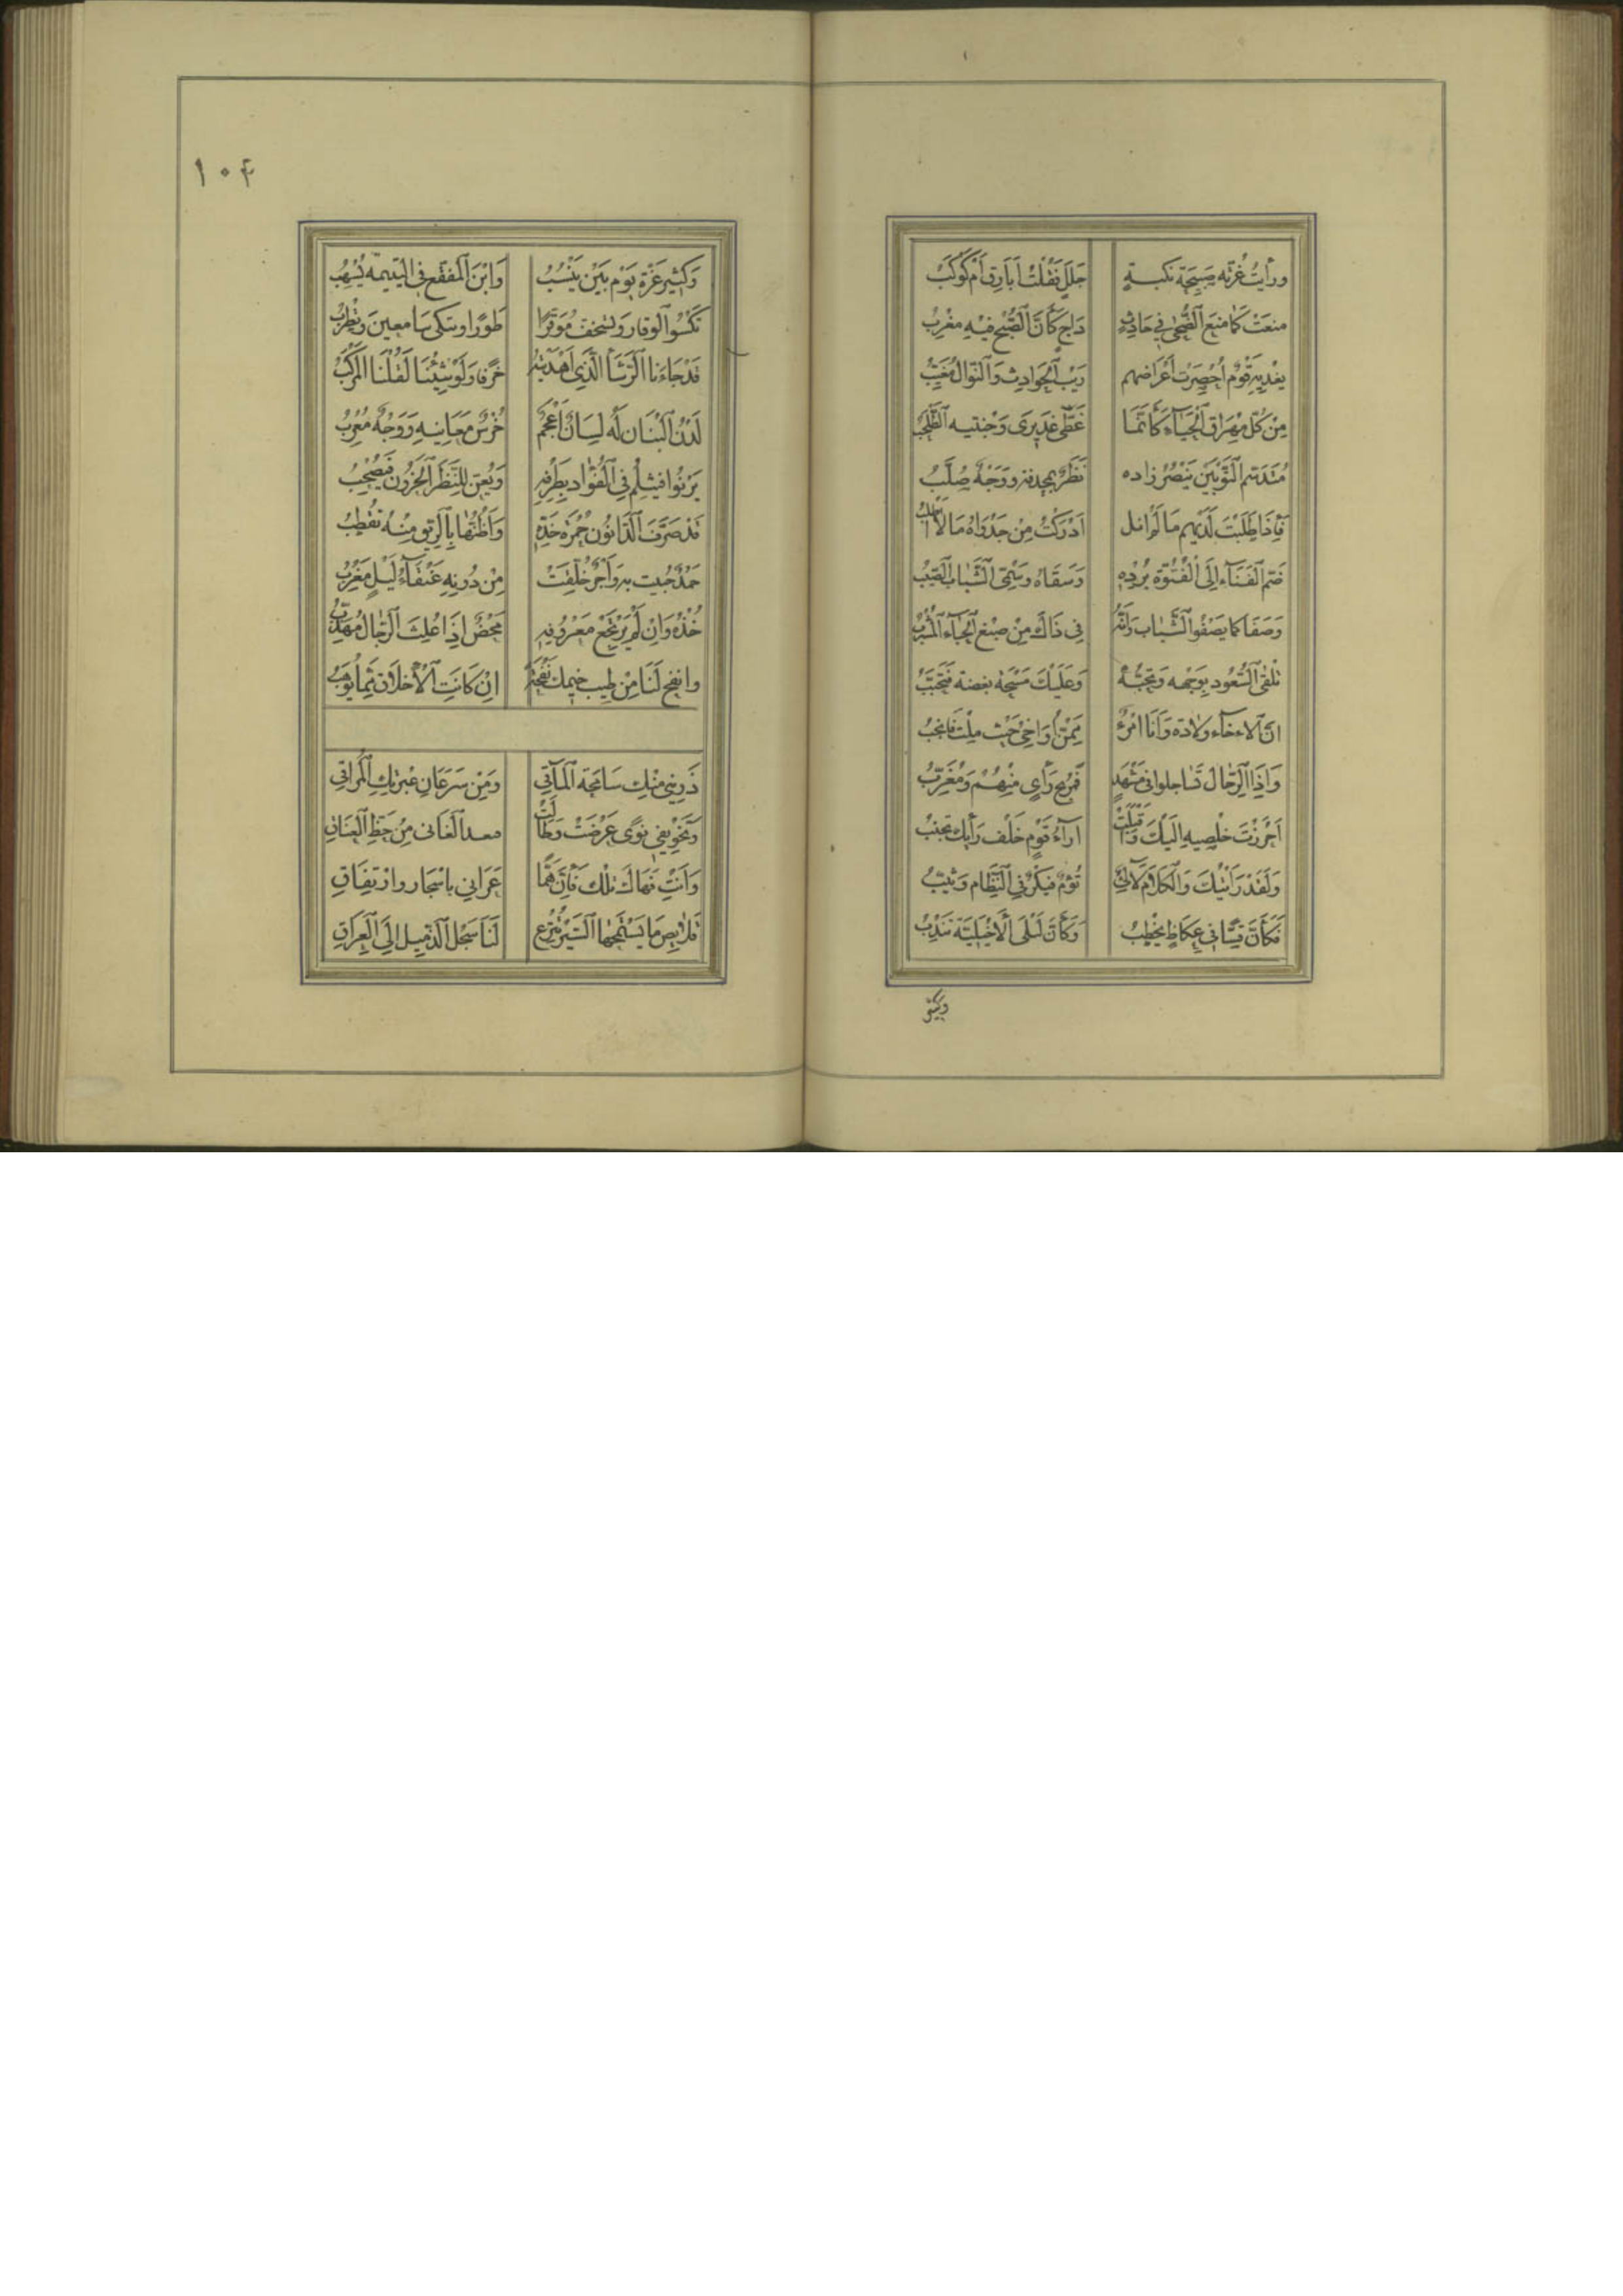 ورأيتُ غُرّته صَبِيحَة نكبةٍ جَلَلٍ فَقُلْتُ أَبَارِقٌ أَمْ كَوْكَبُ
منعَتْ كَمَا منَعَ الضُّحٰى فِي حَادِثٍ دَاجٍ كَأَنَّ الصُّبْحَ فِيهِ مَغْرِبُ
يفْدِيهِ قَوْمٌ أُحْضِرَتْ أَعْرَاضُهم رَيْبَ الْحَوَادِثِ وَالنَّوَالُ مُغَيَّبُ
مِنْ كُلِّ مُهْرَاقِ الْحَيَاءِ كَأَنَّمَا غَطَّى غَدِيرَيْ وَجْنتيه الطُّحْلُبُ
مُتَدَسِّم الثَّوْبَيْنِ يَنْظُرُ زاده نَظَرٌ يُحَدِّقُهُ وَوَجْهٌ صُلَّبُ
فَإِذَا طَلَبْتَ لَدَيْهِم مَا لَمْ انل أَدْرَكْتُ مِنْ جَدْوَاهُ مَا لَا أَطْلُبُ
ضَمَّ الْفَتَاءَ إِلَى الْفُتُوَّةِ بُرْدُه وَسَقَاهُ وَسْمِيُّ الشَّبَابِ الصَّيِّبُ
وَصَفَا كَمَا يَصْفُو الشِّهَابُ وَإِنَّهُ فِي ذَاكَ مِنْ صِبْغِ الْحَيَاءِ لَمُشْرَبُ
تَلْقَى السُّعُودَ بِوَجْهِه وَتُحِبُّهُ وَعَلَيْكَ مَسْحَةُ بِغضة فَتُحَبَّبُ
إِنَّ الْإِخَاءَ وِلَادَةٌ وَأَنَا امْرُؤٌ مِمَّنْ أُوَاخِي حَيْثُ مِلْتُ فَأُنْجِبُ
وَإِذَا الرِّجَالُ تَسَاجَلُوا فِي مَشْهَدٍ فَمُرِيحُ رَأْيٍ مِنْهُمُ وَمُغَرِّبُ
أَحْرَزْتَ خَصْلَيْهِ إِلَيْكَ وَأَقْبَلَتْ آرَاءُ قَوْمٍ خَلْفَ رَأْيِكَ تُجْنَبُ
وَلَقَدْ رَأَيْتُكَ وَالْكَلَامُ لَآلِئٌ تُؤْمٌ فَبِكْرٌ فِي النِّظَامِ وَثَيِّبُ
فَكَأَنَّ قُسًّا فِي عُكَاظٍ يَخْطُبُ وَكَأَنَّ لَيْلَى الْأَخْيَلِيَّةَ تَنْدُبُ
وكثير
١٠٤
وَكَثِيرَ عَزَّةَ يَوْمَ بَيْنٍ يَنْسِبُ وَابْنَ الْمُقَفَّعِ فِي الْيَتِيمَةِ يُسْهِبُ
تَكْسُو الْوَقَارَ وَتَسْتَخِفُّ مُوَقَّرًا طَوْرًا وتبكي سَامعين وَتُطْرِبُ
قَدْ جَاءَنَا الرَّشَأُ الَّذِي أَهْدَيْتَهُ خَرِقًا وَلَوْ شِئْنَا لَقُلْنَا الْمَرْكَبُ
لَدْنُ الْبَنَانِ لَهُ لِسَانٌ أَعْجَمٌ خُرْسٌ مَعَانِيهِ وَوَجْهٌ مُعْرِبُ
يَرْنُو فَيَثْلِمُ فِي الْفُؤَادِ بِطَرْفِهِ وَيَعِنُّ لِلنَّظَرِ الْحَرُونِ فَيُصْحِبُ
قَدْ صَرَّفَ الرَّانُونَ خَمْرَةَ خَدِّهِ وَأَظُنُّهَا بِالرِّيقِ مِنْهُ تُقْطَبُ
حَمْدٌ حُبِيتَ بِهِ وَأَجْرٌ حَلَّقَتْ مِنْ دُونِهِ عَنْقَاءُ لَيْلٍ مُغْرِبُ
خُذْهُ وَإِنْ لَمْ يَرْتَجِعْ مَعْرُوفَهُ مَحْضٌ إِذَا عُلِثَ الرِّجَالُ مُهَذَّبُ
وانفح لَنَا مِنْ طِيبِ خِيمِكَ نَفْحَةً إِنْ كَانَتِ الْأَخْلَاقُ مِمَّا يُوهَبُ
ذَرِينِي مِنْكِ سَافِحَةَ الْمَآقِي وَمِنْ سَرَعَانِ عَبْرَتِكِ الْمُرَاقِ
وَتَخْوِيفِي نَوًى عَرُضَتْ وَطَالَتْ فبعد الْغَايَةِ مِنْ حَظِّ الْعِتَاقِ
وَأَنْتِ نهاك تلك فَإِنَّ هَمًّا عَرَانِي بِاشْتِجَارٍ وَارْتِفَاقِ
قَلَائِصَ مَا يَقِيهَا السَّيْرَ مُنْزَعٌ لَنَا سَجْلَ الذَّمِيلِ إِلَى الْعِرَاقِ